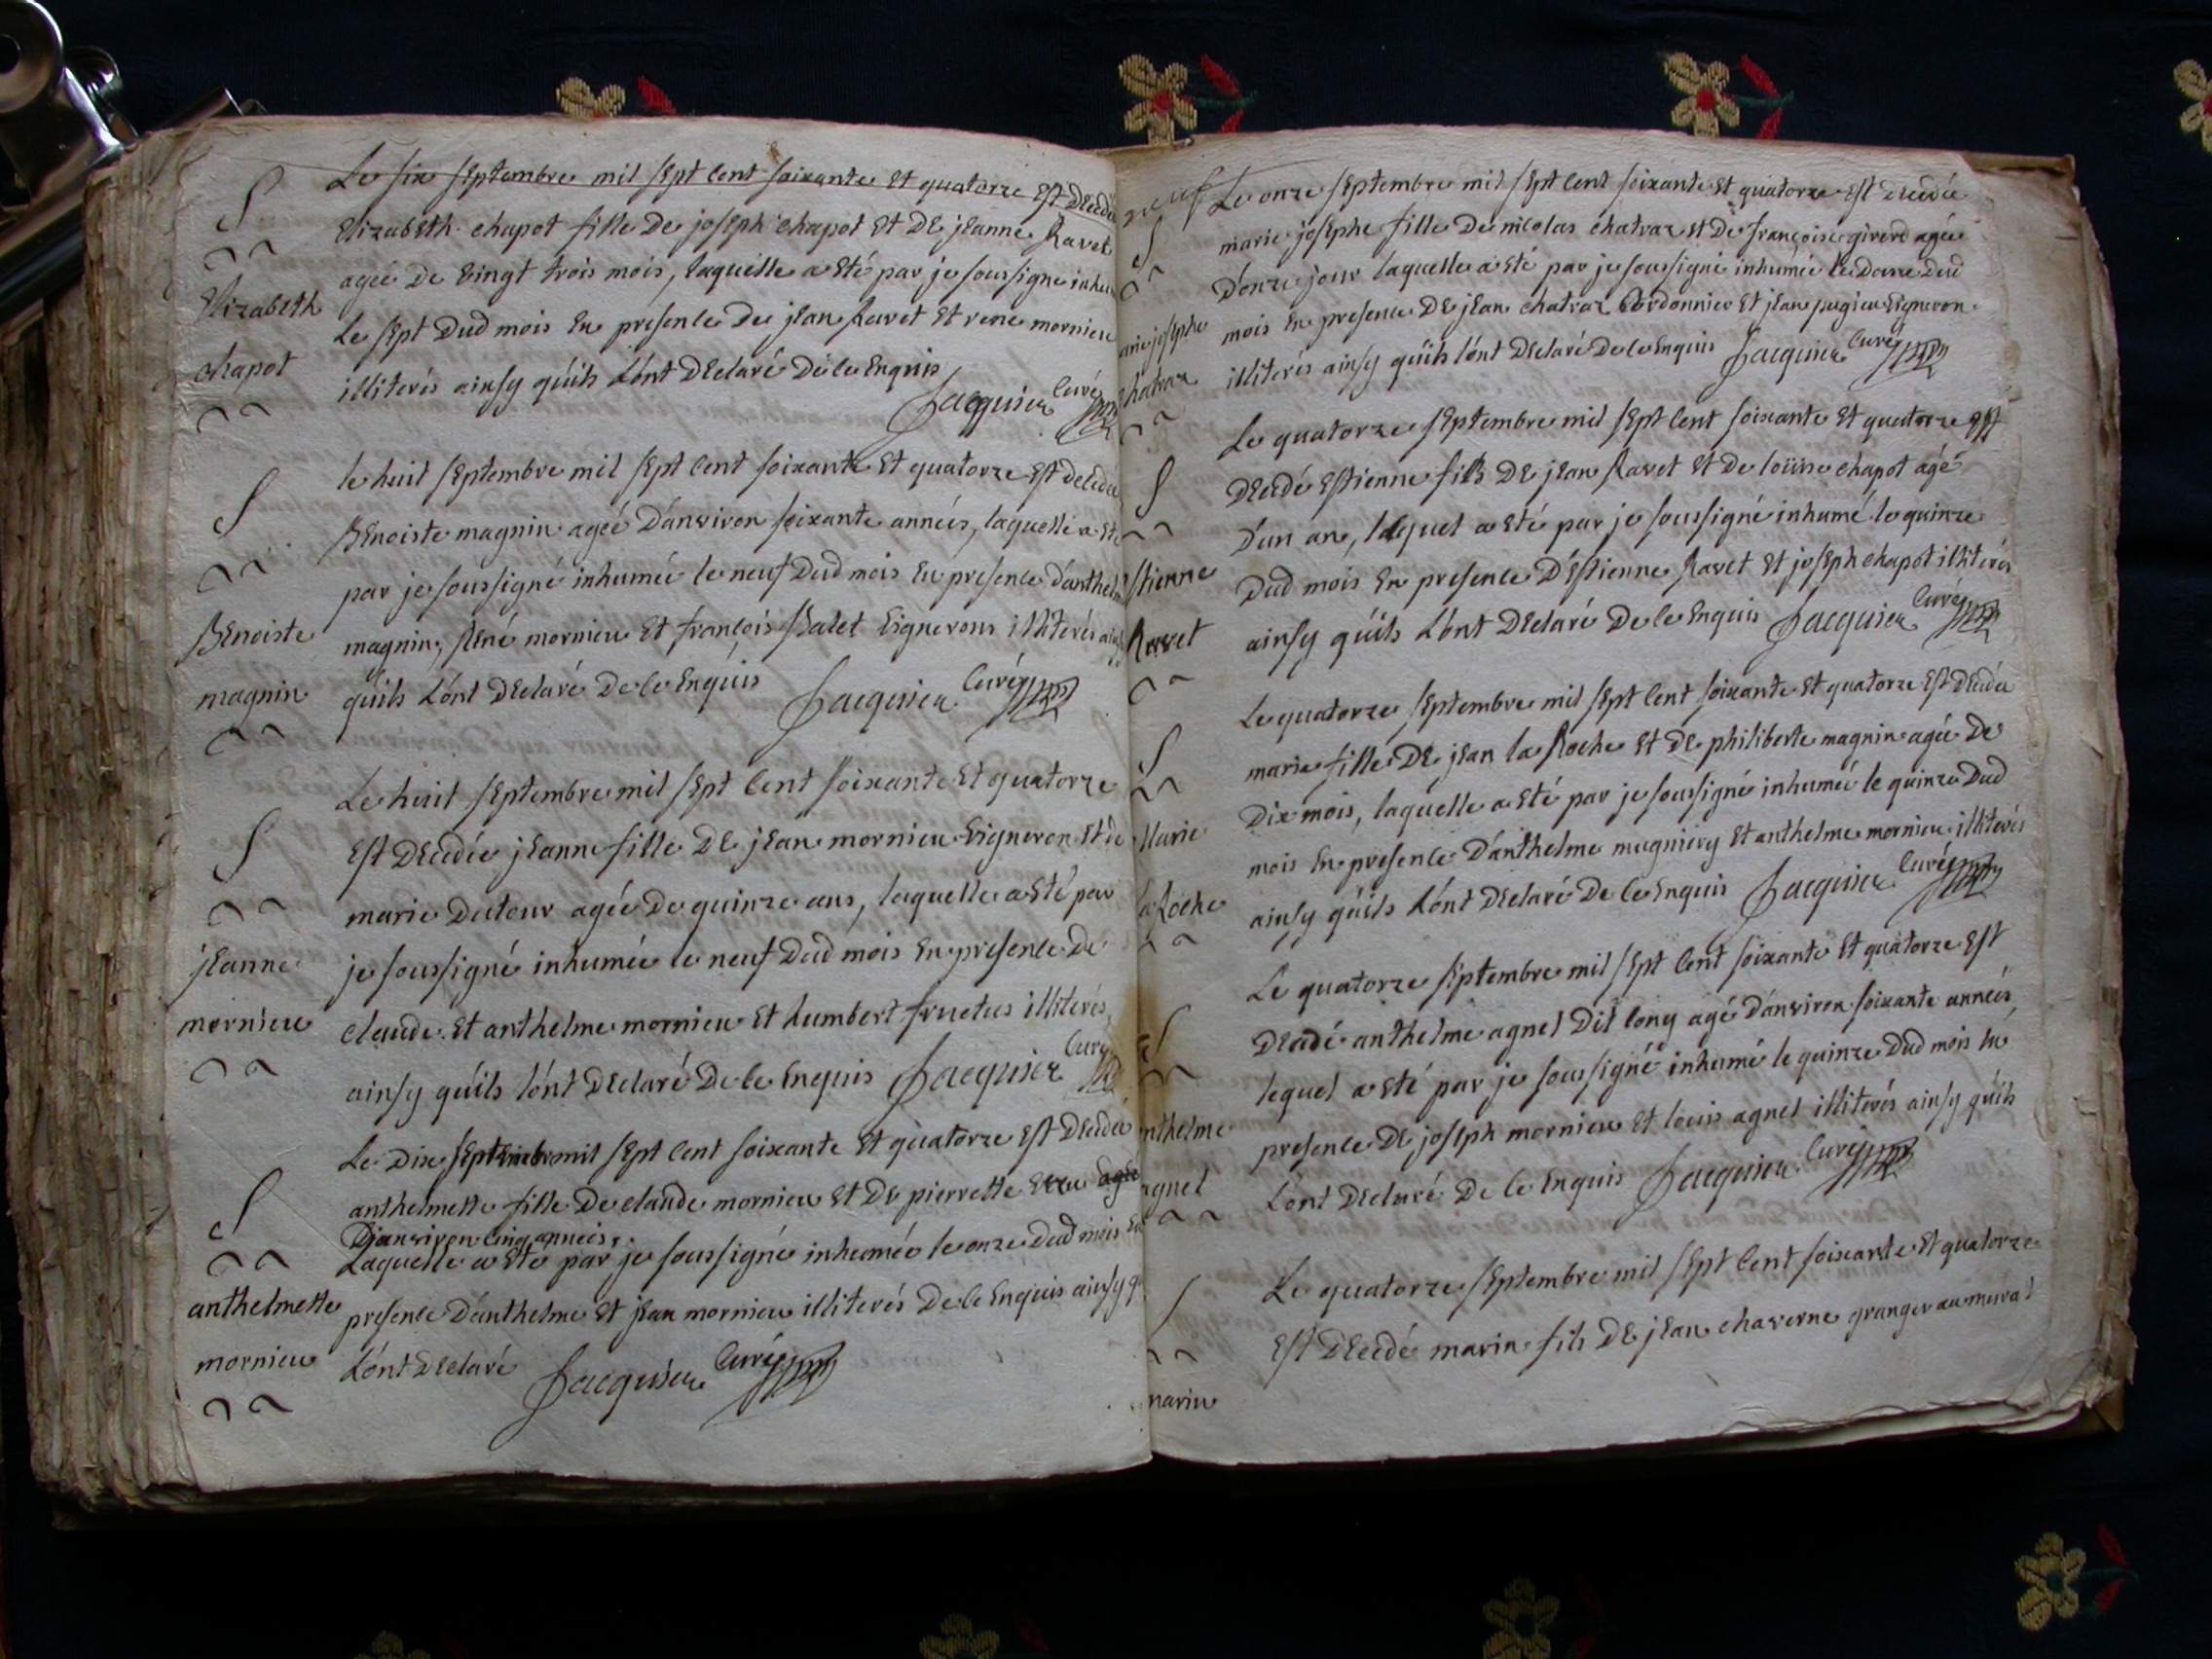 S
Elizabeth
chapot
Le six septembre mil sept cent soixante et quatorze est decedée
Elizabeth chapot fille de joseph chapot et de jeanne Ravet
agée de vingt trois mois, laquelle a eté par je soussigné inhu
le sept dud mois en presence de jean Ravet et rene mornieu
illiterés ainsy qúils lónt declaré de ce enquis
Jacquier curé
S
Benoiste
magnin
le huit septembre mil sept cent soixante et quatorze est decedée
Benoiste magnin agée dánviron soixante années, laquelle a eté
par je soussigné inhumée le neuf dud mois en presence dánthelm
magnin, René mornieu et françois Balet vignerons illiterés ainsy
qúils lónt declaré de ce enquis
Jacquier curé
S
jeanne
mornieu
Le huit septembre mil sept cent soixante et quatorze
est decedée jeanne fille de jean mornieu vigneron et de
marie dutour agée de quinze ans, laquelle a eté par
je soussigné inhumée le neuf dud mois en presence de
claude et anthelme mornieu et humbert fructus illiterés
ainsy qúils lónt declaré de ce enquis Jacquier curé
S
anthelmette
mornieu
Le dix septembre mil sept cent soixante et quatorze est decedée
anthelmette fille de claude mornieu et de pierrette agée
dánviron cinq années,
laquelle a eté par je soussigné inhumée le onze dud mois en
presence dánthelme et jean mornieu illiterés de ce enquis ainsy q
lónt declaré Jacquier curé
neuf
S
arie josephe
chatraz
Le onze septembre mil sept cent soixante et quatorze est decedée
marie josephe fille de nicolas chatraz et de françoise girerd agée
dónze jour laquelle a eté par je soussigné inhumée le douze dud
mois en presence de jean chatraz Cordonnier et jean pugieu vigneron
illiterés ainsy qúils lónt declaré de ce enquis Jacquier curé
S
Estienne
Ravet
Le quatorze septembre mil sept cent soixante et quatorze est
decedé Estienne fils de jean Ravet et de loüise chapot agé
dún an, lequel a eté par je soussigné inhumé le quinze
dud mois en presence dÉstienne Ravet et joseph chapot illiterés
ainsy qúils lónt declaré de ce enquis Jacquier curé
S
Marie
la Roche
Le quatorze septembre mil sept cent soixante et quatorze est decedée
marie fille de jean la Roche et de philiberte magnin agée de
dix mois, laquelle a eté par je soussigné inhumée le quinze dud
mois en presence dánthelme mugniery et anthelme mornieu illiterés
ainsy qúils lónt declaré de ce enquis Jacquier curé
S
nthelme
agnel
Le quatorze septembre mil sept cent soixante et quatorze est
decedé anthelme agnel dit lony agé dánviron soixante années
lequel a eté par je soussigné inhumé le quinze dud mois en
presence de joseph mornieu et louis agnel illiterés ainsy qúils
lónt declaré de ce enquis Jacquier curé
S
marin
Le quatorze septembre mil sept cent soixante et quatorze
est decedé marin fils de jean chaverne granger au mural